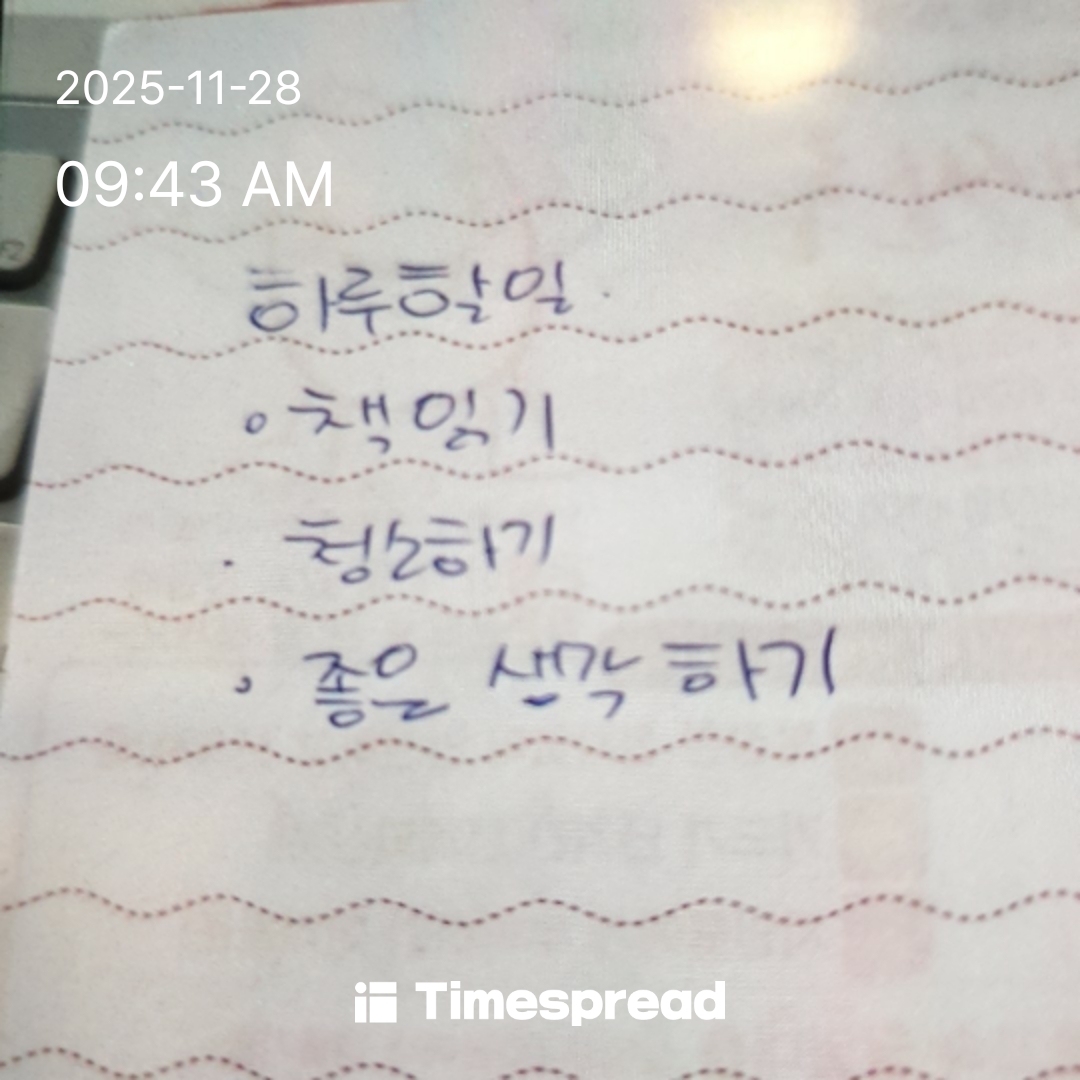 2025-11-28
09:43 AM
F2
하루할일.
◦ 책읽기
· 청소하기
· 좋은 생각하기
Timespread